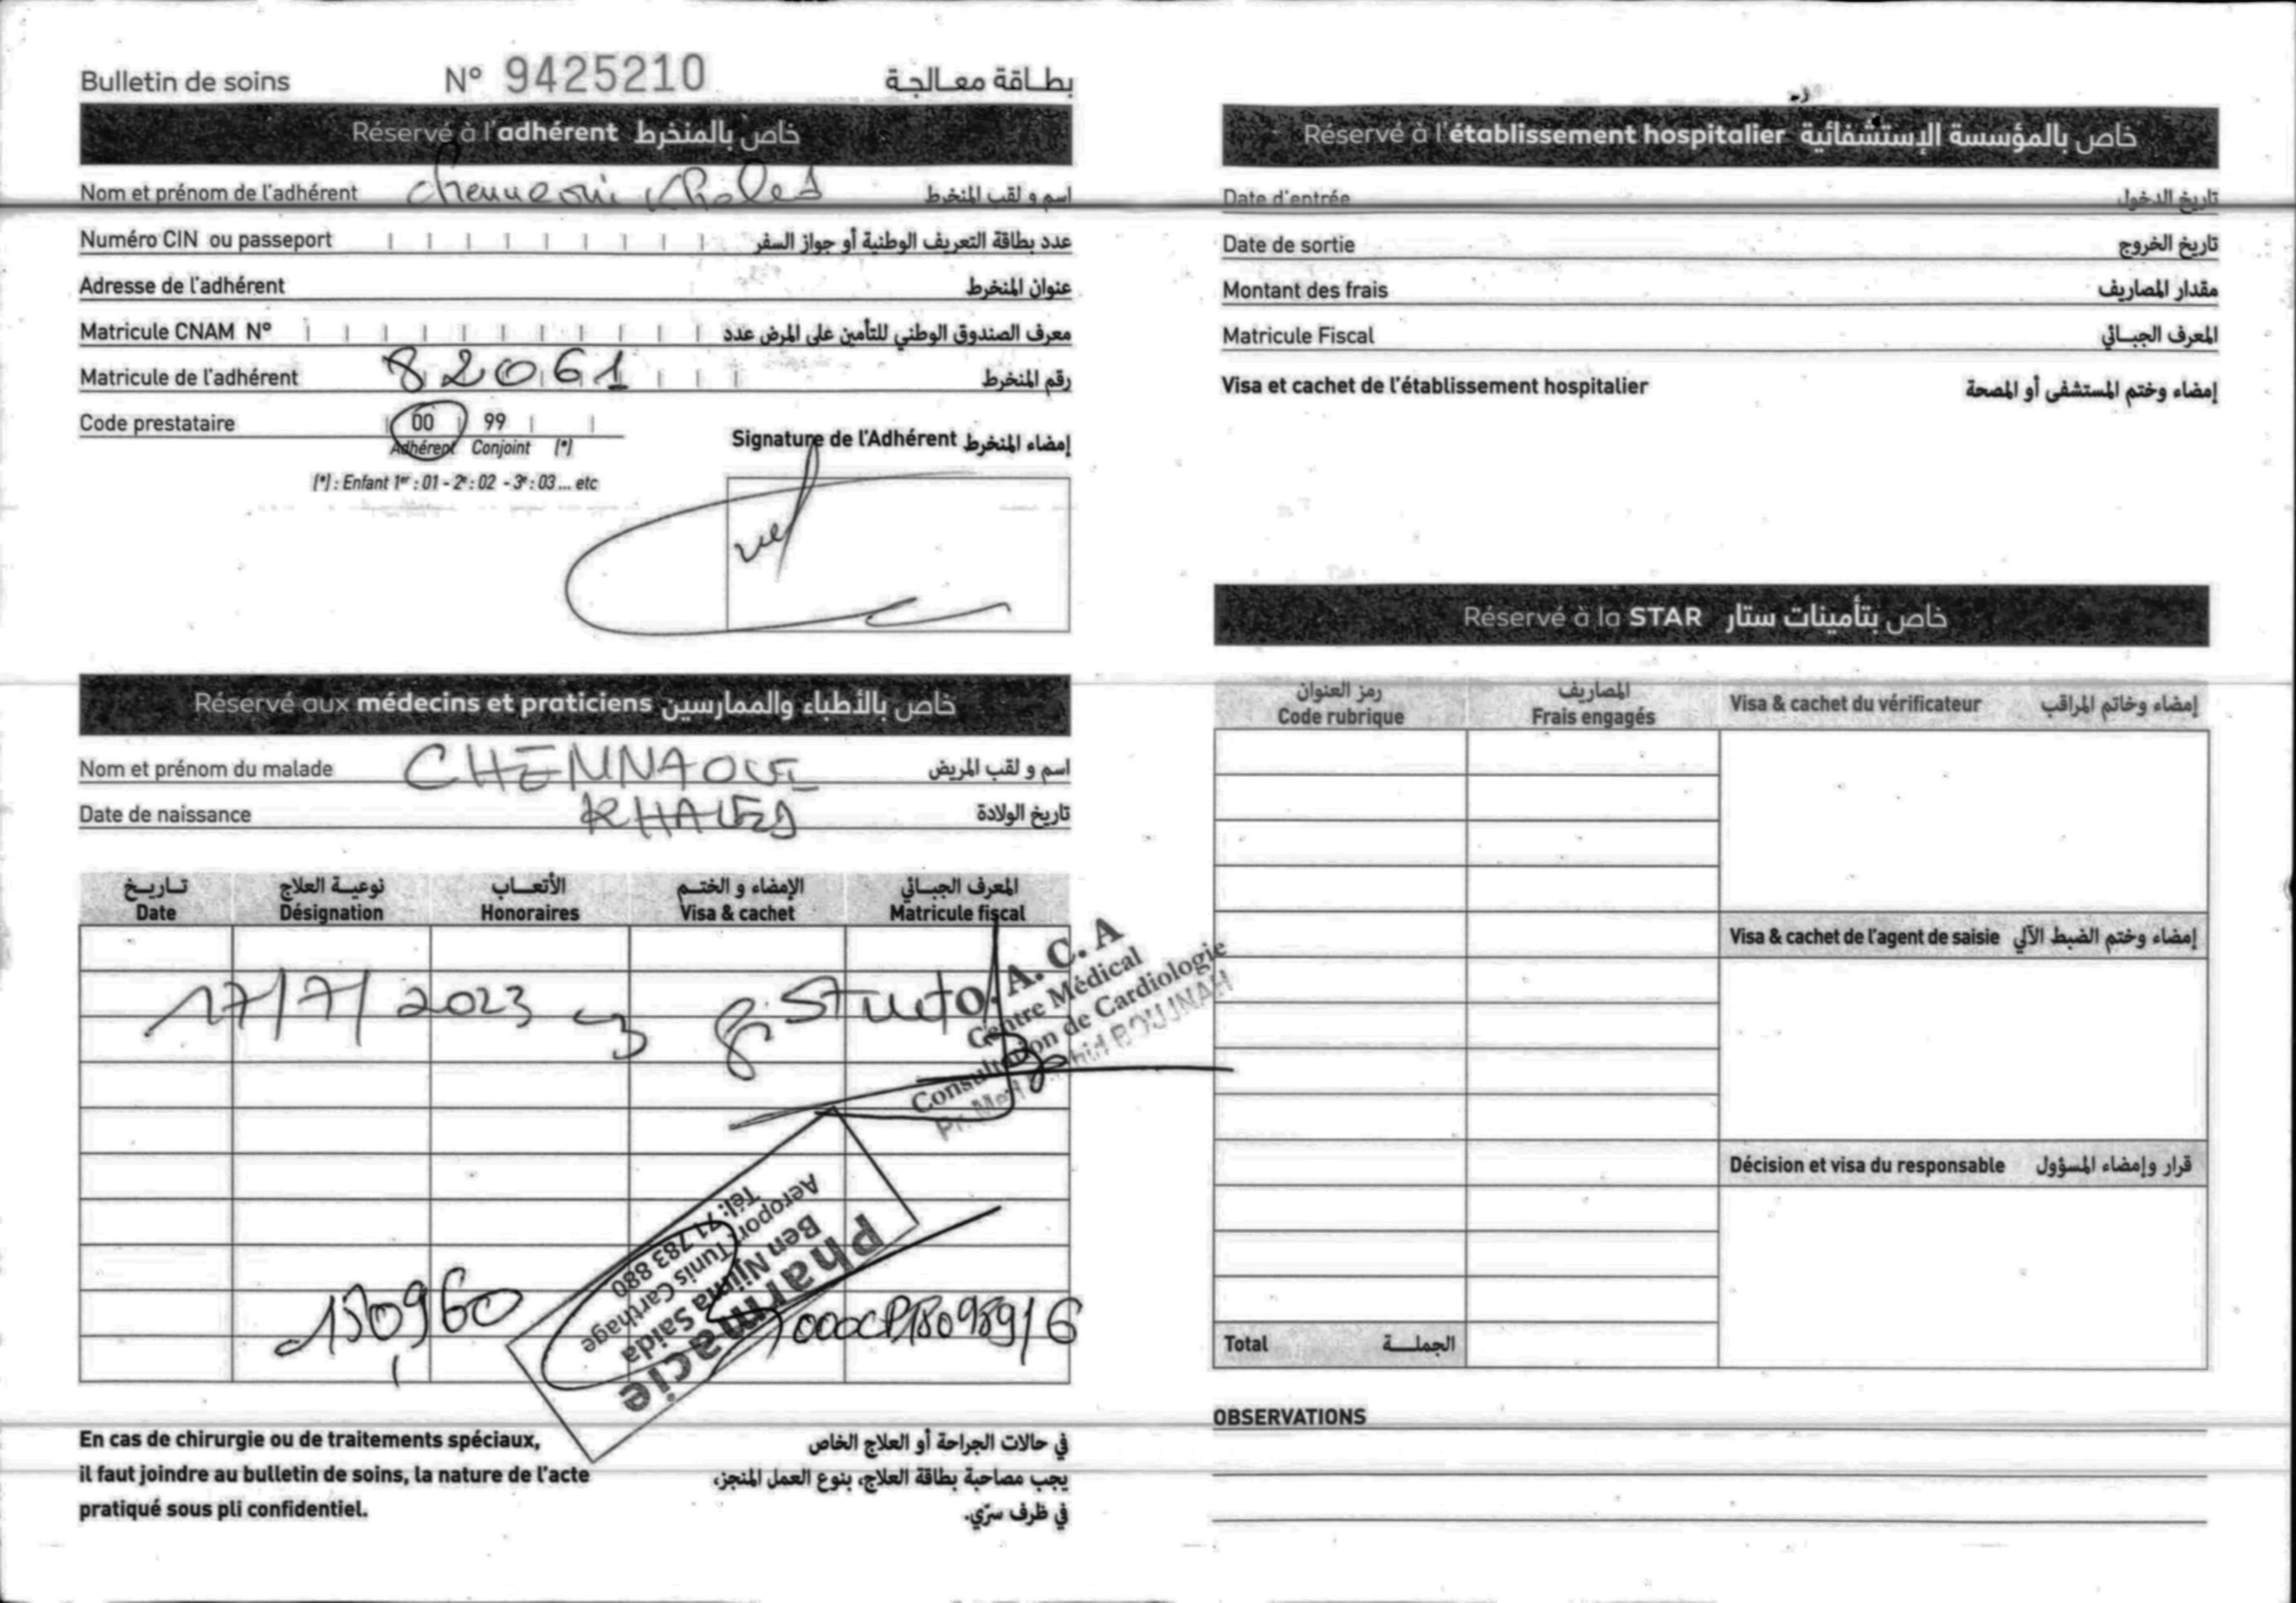 Bulletin de soins N° 9425210 بطاقة معالجة
Réservé à l'adhérent خاص بالمنخرط
Nom et prénom de l'adhérent اسم و لقب المنخرط
Numéro CIN ou passeport عدد بطاقة التعريف الوطنية أو جواز السفر
Adresse de l'adhérent عنوان المنخرط
Matricule CNAM N° معرف الصندوق الوطني للتأمين على المرض عدد
Matricule de l'adhérent 82061 رقم المنخرط
Code prestataire 00 99
Adhérent Conjoint (*)
(*) : Enfant 1er : 01 - 2e : 02 - 3e : 03 ... etc
Signature de l'Adhérent إمضاء المنخرط
Réservé aux médecins et praticiens خاص بالأطباء والممارسين
Nom et prénom du malade CHENNAOUI اسم و لقب المريض
Date de naissance KHALED تاريخ الولادة
تاريخ نوعية العلاج الأتعاب الإمضاء و الختم المعرف الجبائي
Date Désignation Honoraires Visa & cachet Matricule fiscal
17/7/2023
O. A. C. A
Centre Médical
Consultation de Cardiologie
BOUJNAH
Pharmacie
Ben Njima Saida
Aeroport Tunis Carthage
Tél: 71 783 880
En cas de chirurgie ou de traitements spéciaux,
il faut joindre au bulletin de soins, la nature de l'acte
pratiqué sous pli confidentiel.
في حالات الجراحة أو العلاج الخاص
يجب مصاحبة بطاقة العلاج، بنوع العمل المنجز،
في ظرف سرّي.
Réservé à l'établissement hospitalier خاص بالمؤسسة الإستشفائية
Date d'entrée تاريخ الدخول
Date de sortie تاريخ الخروج
Montant des frais مقدار المصاريف
Matricule Fiscal المعرف الجبائي
Visa et cachet de l'établissement hospitalier إمضاء وختم المستشفى أو المصحة
Réservé à la STAR خاص بتأمينات ستار
رمز العنوان المصاريف
Code rubrique Frais engagés Visa & cachet du vérificateur إمضاء وخاتم المراقب
Visa & cachet de l'agent de saisie إمضاء وختم الضبط الآلي
Décision et visa du responsable قرار وإمضاء المسؤول
Total الجملة
OBSERVATIONS